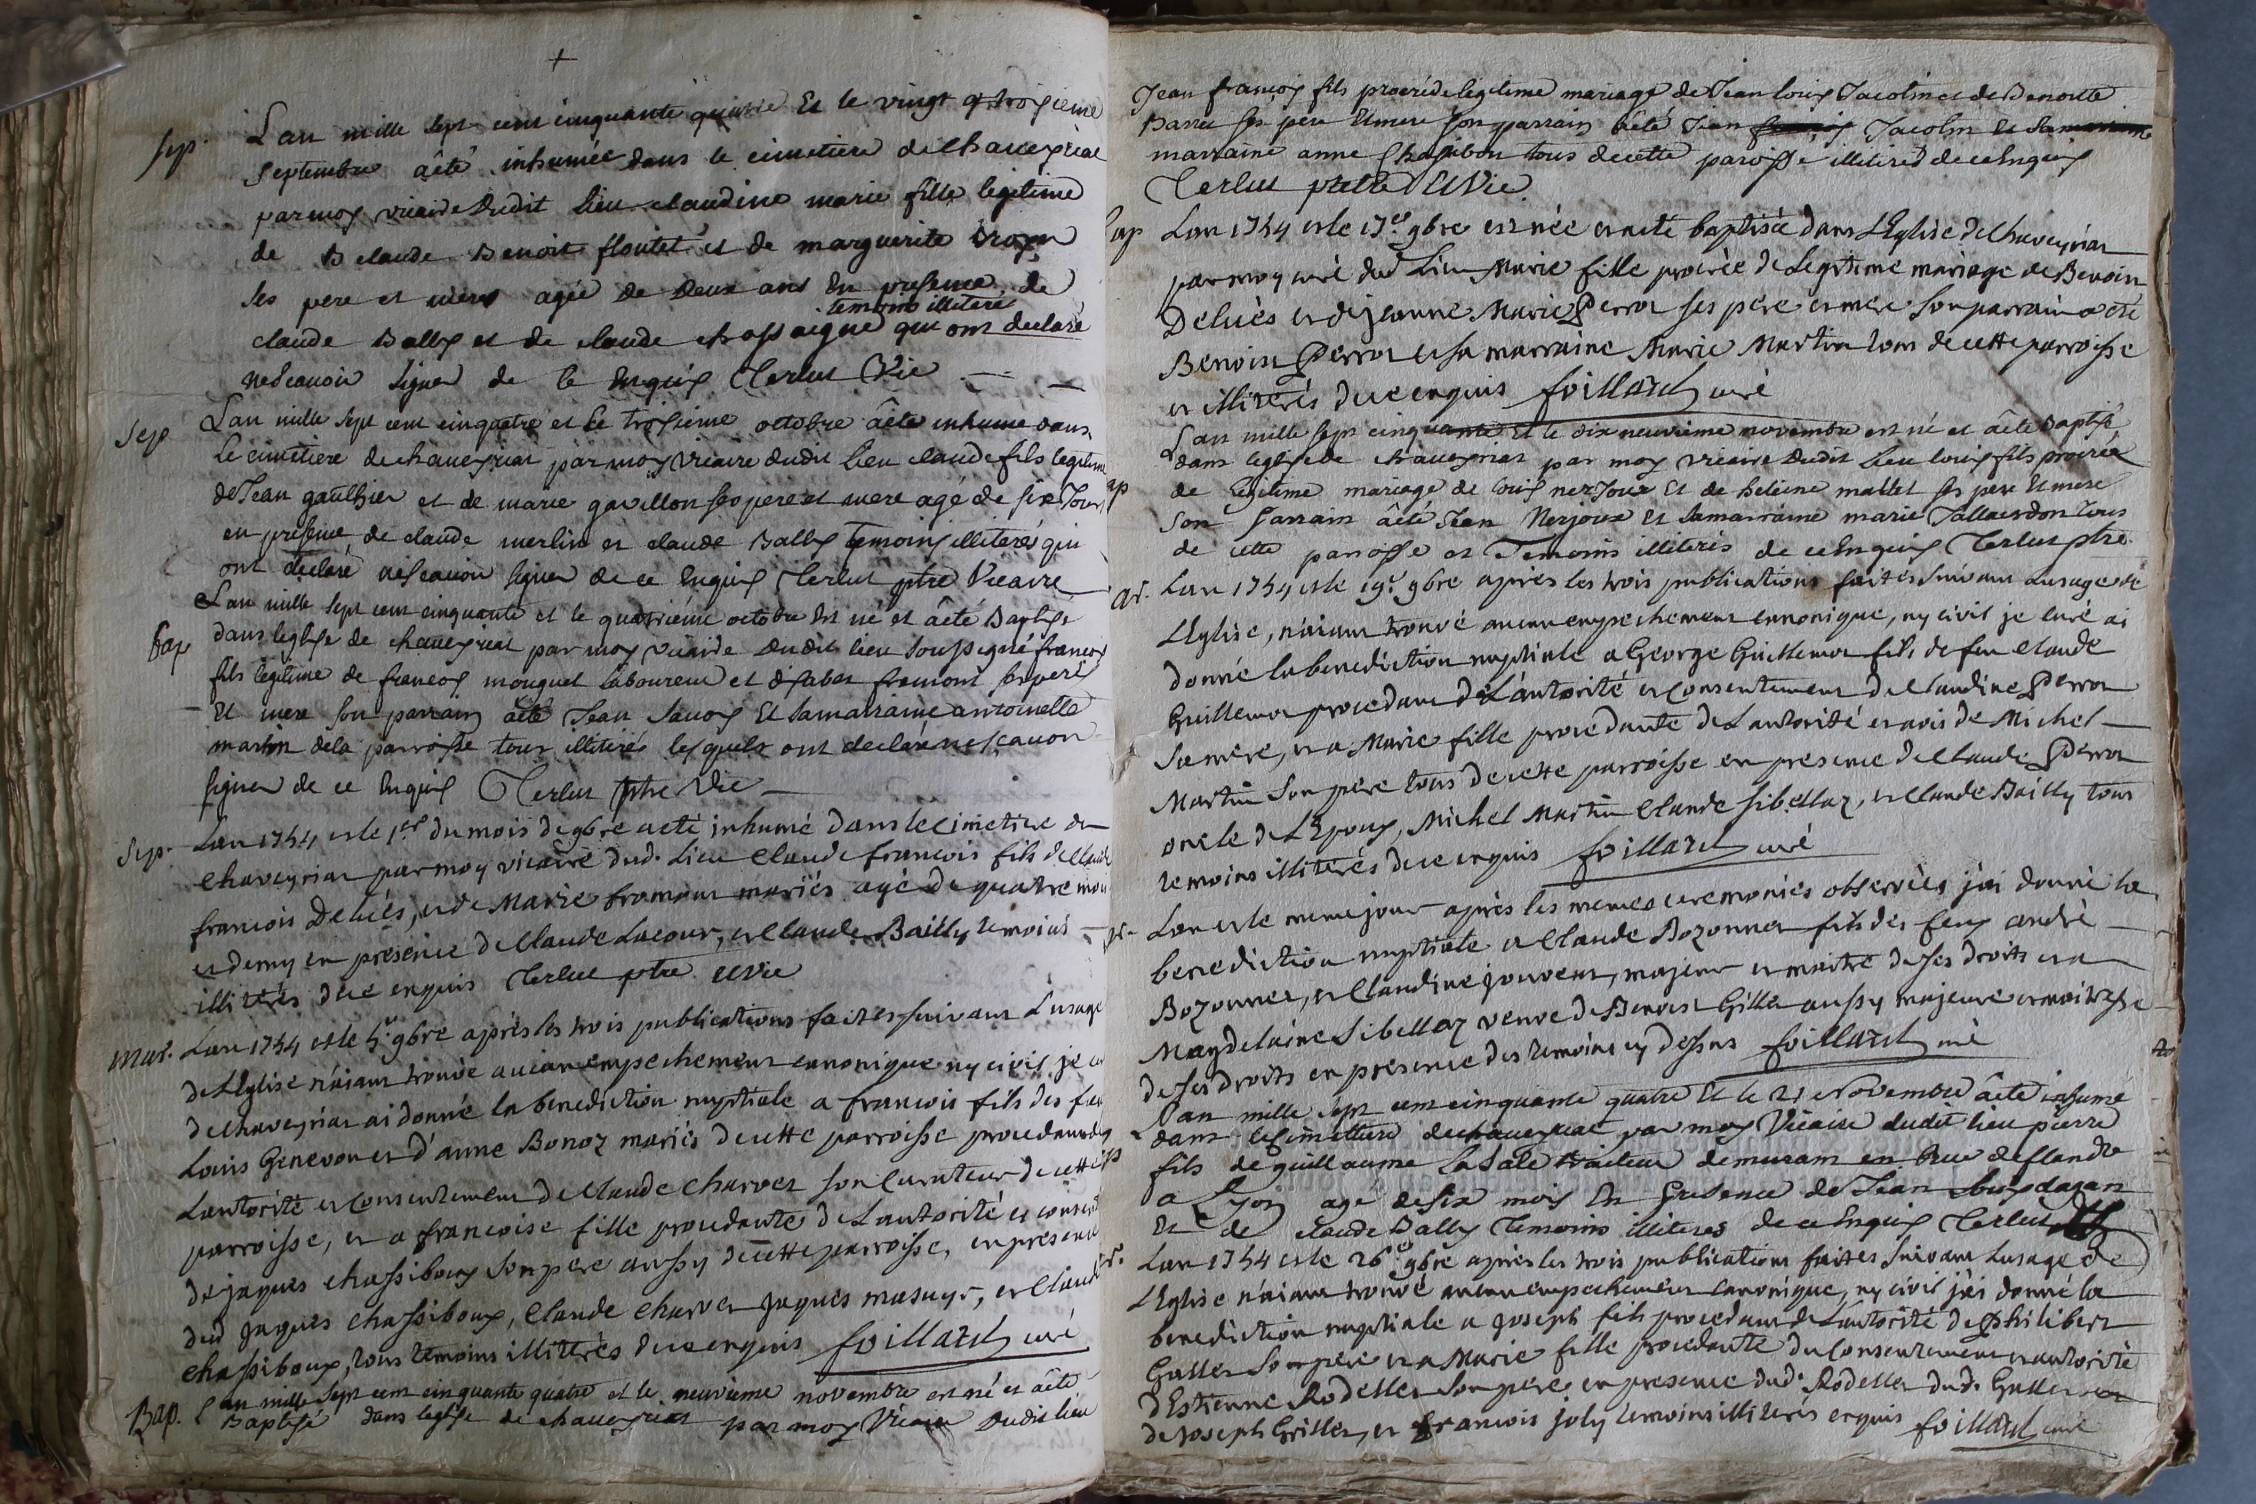 +
sep. Lan mille sept cent cinquante quatre Et le vingt troisieme
septembre aêté inhumée dans le cimetiere de chaveyriat
par moy vicaire dudit lieu claudine marie fille legitime
de claude Benoit floutet et de marguerite
ses pere et mere agée de deux ans En presence de
temoins illiteré
claude Bally et de claude chassaigne qui ont declaré
nescavoir signer de ce Enquis Terlut Vic
Sep Lan mille sept cent cinquatre et le troisieme octobre aêté inhumé dans
le cimetiere de chaveyriat par moy vicaire dudit lieu claude fils legitime
de Jean gauthier et de marie gavillon ses pere et mere agé de six Jours
en presence de claude merlin et claude Bally temoins illiterés qui
ont declaré nescavoir signer de ce Enquis Terlut ptre Vicaire
Bap Lan mille sept cent cinquante et le quatrieme octobre Est né et aêté Baptisé
dans leglise de chaveyriat par moy vicaire dudit lieu soussigné francois
fils legitime de francois mouquet laboureur et disabet fromont ses peres
Et mere son parrain aêté Jean Savoy Et sa marraine antoinette
marton dela parroisse tous illiterés lesquels ont declaré nescavoir
signer de ce Enquis Terlut ptre Vic
Sep. Lan 1754 et le 1er du mois de 9bre aeté inhumé dans le cimetiere de
chaveyriat par moy vicaire dud. lieu Claude francois fils de Claude
francois Deluès, et de Marie fromont mariés agé de quatre mois
et demy en presence de Claude Lacour, et Claude Bailly temoins
illiterés de ce enquis Terlut ptre et vic
Mar. Lan 1754 et le 5e 9bre après les trois publications faites suivant Lusage
de L'Eglise n'aiant trouvé aucun empechement canonique ny civil je
de chaveyriat ai donné la benediction nuptiale a francois fils des feu
Louis Genevon et d'anne Bonoz mariés de cette parroisse procedant de
Lautorité et consentement de Claude Charvet son curateur de cette
parroisse, et a francoise fille procedante de Lautorité et consent
de jaques chassiboux son pere aussy de cette parroisse, en presence
dud jaques chassiboux, Claude Charvet jaques masuyr, et Claude
chassiboux, tous temoins illiterés de ce enquis foillard curé
Bap. Lan mille sept cent cinquante quatre et le neuvieme novembre est né et aêté
Baptisé dans leglise de chaveyriat par moy Vicaire dudit lieu
Jean francois fils procréé de legitime mariage de Jean louis Jacolin et de Benoitte
Barret ses pere Et mere son parrain aêté Jean Jacolin Et sa
marraine anne Chambon tous de cette paroisse illiterés de ce Enquis
Terlut ptre Et Vic
ap Lan 1754 et le 17e 9bre est née et aeté baptisée dans L'Eglise de Chaveyriat
par moy curé dud Lieu Marie fille procréée de Legitime mariage de Benoit
Deluès et de jeanne Marie Perrot ses pere et mere son parrain a eté
Benoist Perrot et sa marraine Marie Martin tous de cette parroisse
et illiterés de ce enquis foillard curé
ap Lan mille sept cinquante Et le dix neuvieme novembre est né et aêté Baptisé
dans leglise de chaveyriat par moy vicaire dudit lieu louis fils procréé
de legitime mariage de louis nerjoux Et de heleine mallet ses pere Et mere
son parrain aêté Jean Nerjoux Et sa marraine marie Tallaerdon tous
de cette paroisse et Temoins illiterés de ce Enquis Terlut ptre
ar. Lan 1754 et le 19e 9bre après les trois publications faites suivant Lusage de
L'Eglise, n'aiant trouvé aucun empechement canonique, ny civil je curé ai
donné la benediction nuptiale a George Guillemot fils de feu claude
Guillemot procedant de L'autorité et consentement de Claudine Perrot
sa mere, et a Marie fille procedante de Lautorité et avis de Michel
Martin son pere tous de cette parroisse en presence de Claude Perrot
oncle de L'Epoux, Michel Martin Claude Sibellaz, et Claude Bailly tous
temoins illiterés de ce enquis foillard curé
ar. Lan et le meme jour après les memes ceremonies observées j'ai donné la
benediction nuptiale a Claude Bozonnet fils des feux andré
Bozonnet, et Claudine jouvent, majeur et maitre de ses droits et a
Magdelaine Sibellaz veuve de Benoist Gillet aussy majeure et maitresse
de ses droits en presence des temoins cy dessus foillard curé
Lan mille sept cent cinquante quatre Et le 21 Novembre aêté inhumé
dans le Cimettiere de chaveyriat par moy Vicaire dudit lieu pierre
fils de guillaume la Sale traiteur demurant en Rue de flandre
a Lyon agé de six mois En presence de Jean
Et de claude Bally Temoins illiteres de ce Enquis Terlut
r. Lan 1754 et le 26e 9bre après les trois publications faites suivant Lusage de
L'Eglise n'aiant trouvé aucun empechement canonique, ny civil j'ai donné la
benediction nuptiale a joseph fils procedant de Lautorité de Philibert
Gallet son pere et a Marie fille procedante du consentement et autorité
d'Estienne Rodellet son pere, en presence dud. Rodellet dud. Gallet
de joseph Grillet, et francois joly temoins illiterés enquis foillard curé